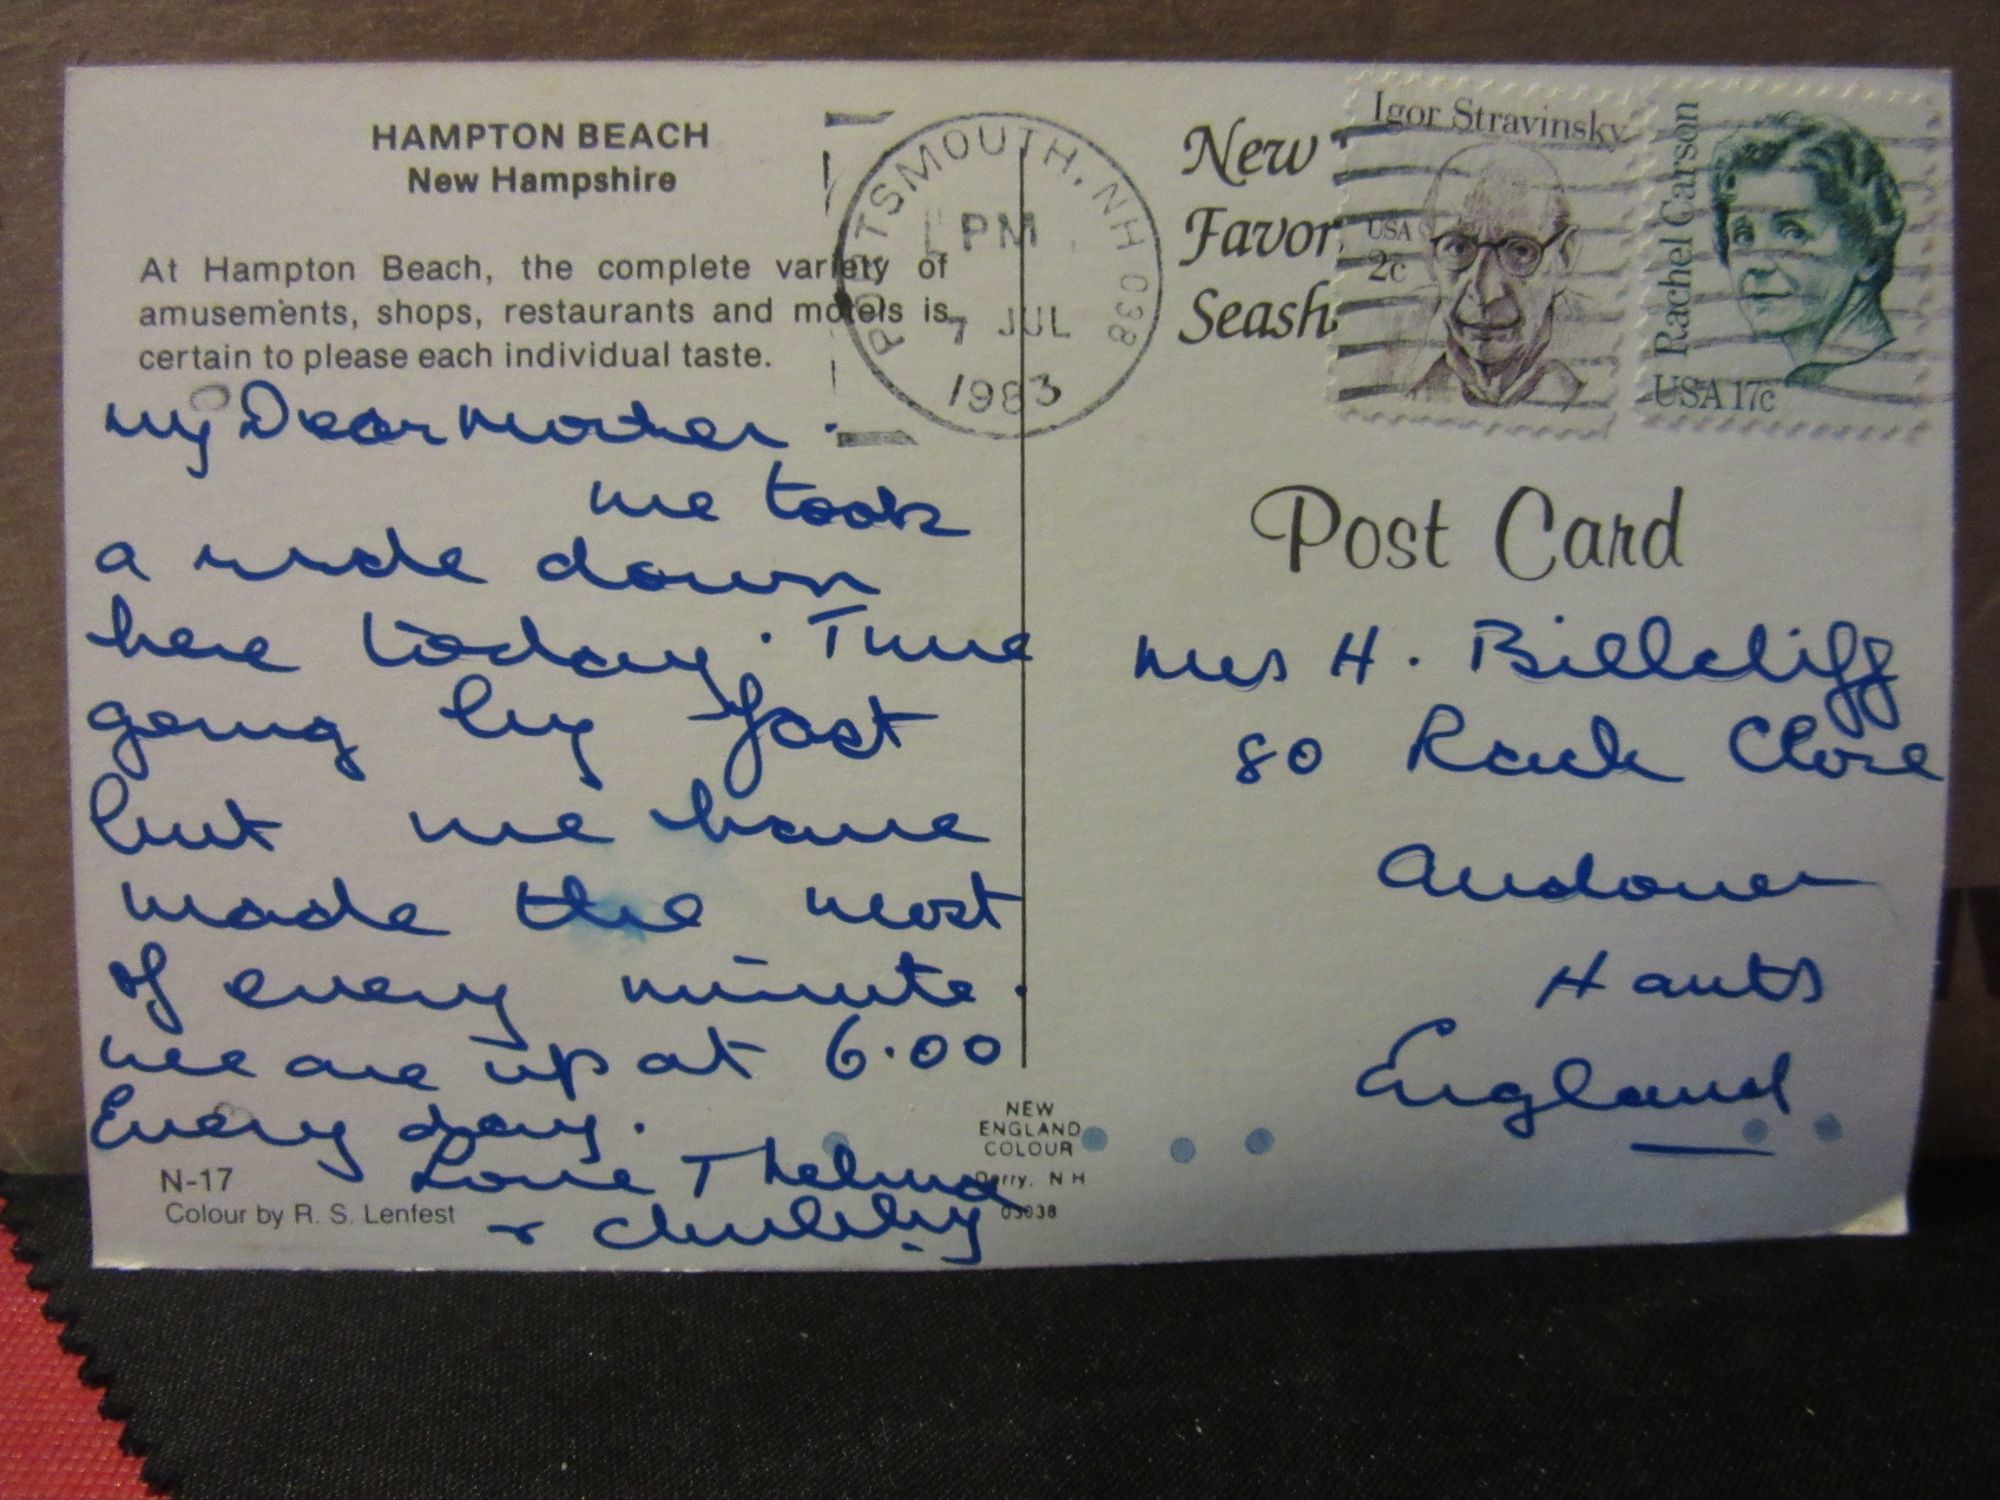 HAMPTON BEACH
New Hampshire
At Hampton Beach, the complete variety of
amusements, shops, restaurants and motels is
certain to please each individual taste.
My Dear Mother.
we took
a ride down
here today. Time
going by fast
but we have
made the most
of every minute.
we are up at 6.00
Every day.
Love Thelma
& Chubby
N-17
Colour by R. S. Lenfest
NEW
ENGLAND
COLOUR
Derry, N H
03038
PORTSMOUTH, NH 038
PM
7 JUL
1983
New
Favor
Seash
Igor Stravinsky
USA
2c
Rachel Carson
USA 17c
Post Card
Mrs H. Billcliff
80 Close
Andover
Hants
England